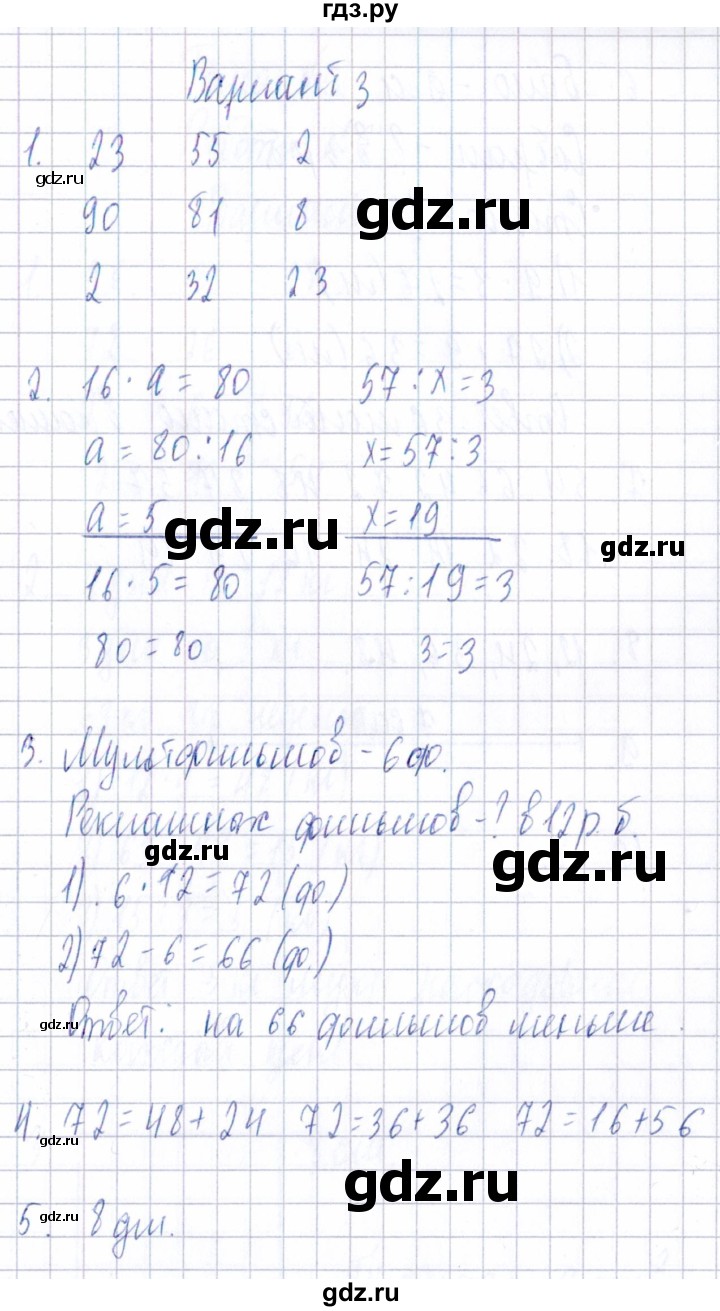 гдз.ру
Вариант 3
1. 23 55 2
gdz.ru
90 81 8
gdz.ru
2 32 23
2. 16 · a = 80 57 : x = 3
a = 80 : 16 x = 57 : 3
a = 5 x = 19
gdz.ru
gdz.ru
16 · 5 = 80 57 : 19 = 3
80 = 80 3 = 3
3. Мультфильмов - 6 ф.
Рекламных фильмов - ? в 12 р. б.
gdz.ru
gdz.ru
1) 6 · 12 = 72 (ф.)
2) 72 - 6 = 66 (ф.)
gdz.ru
Ответ: на 66 фильмов меньше.
4. 72 = 48 + 24 72 = 36 + 36 72 = 16 + 56
gdz.ru
gdz.ru
5. 8 дм.
gdz.ru
gdz.ru